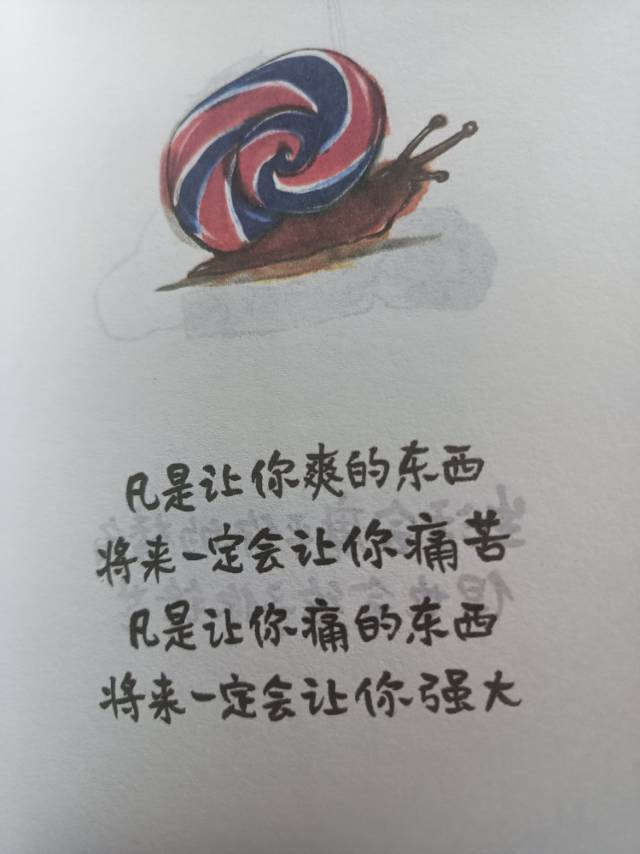 凡是让你爽的东西
将来一定会让你痛苦
凡是让你痛的东西
将来一定会让你强大